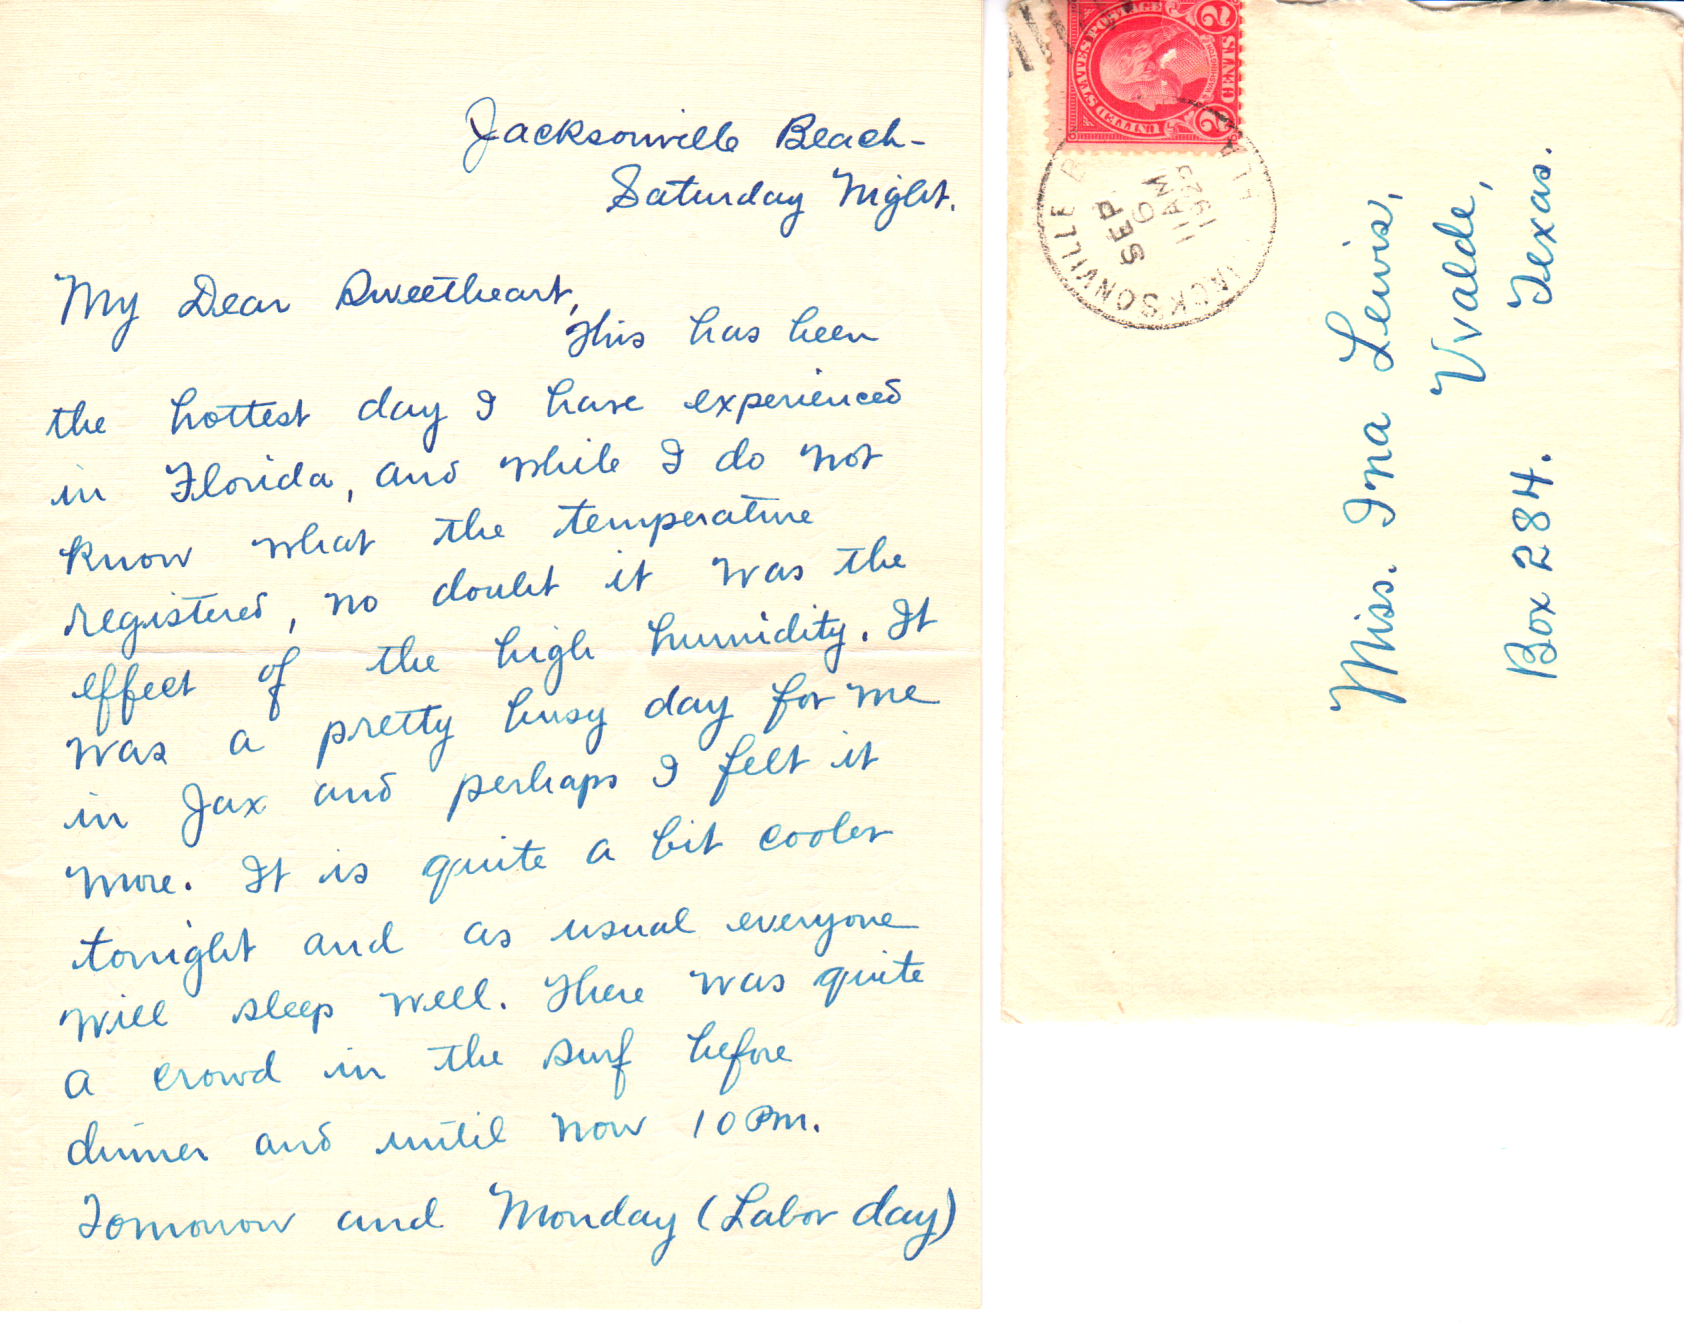 Jacksonville Beach-
Saturday Night.
My Dear Sweetheart,
This has been
the hottest day I have experienced
in Florida, and while I do not
know what the temperature
registered, no doubt it was the
effect of the high humidity. It
was a pretty busy day for me
in Jax and perhaps I felt it
more. It is quite a bit cooler
tonight and as usual everyone
will sleep well. There was quite
a crowd in the surf before
dinner and until now 10 PM.
Tomorrow and Monday (Labor day)
UNITED STATES POSTAGE
2 CENTS 2
JACKSONVILLE B
FLA
SEP
6
11 AM
1925
Miss. Ina Lewis,
Uvalde,
Box 284. Texas.